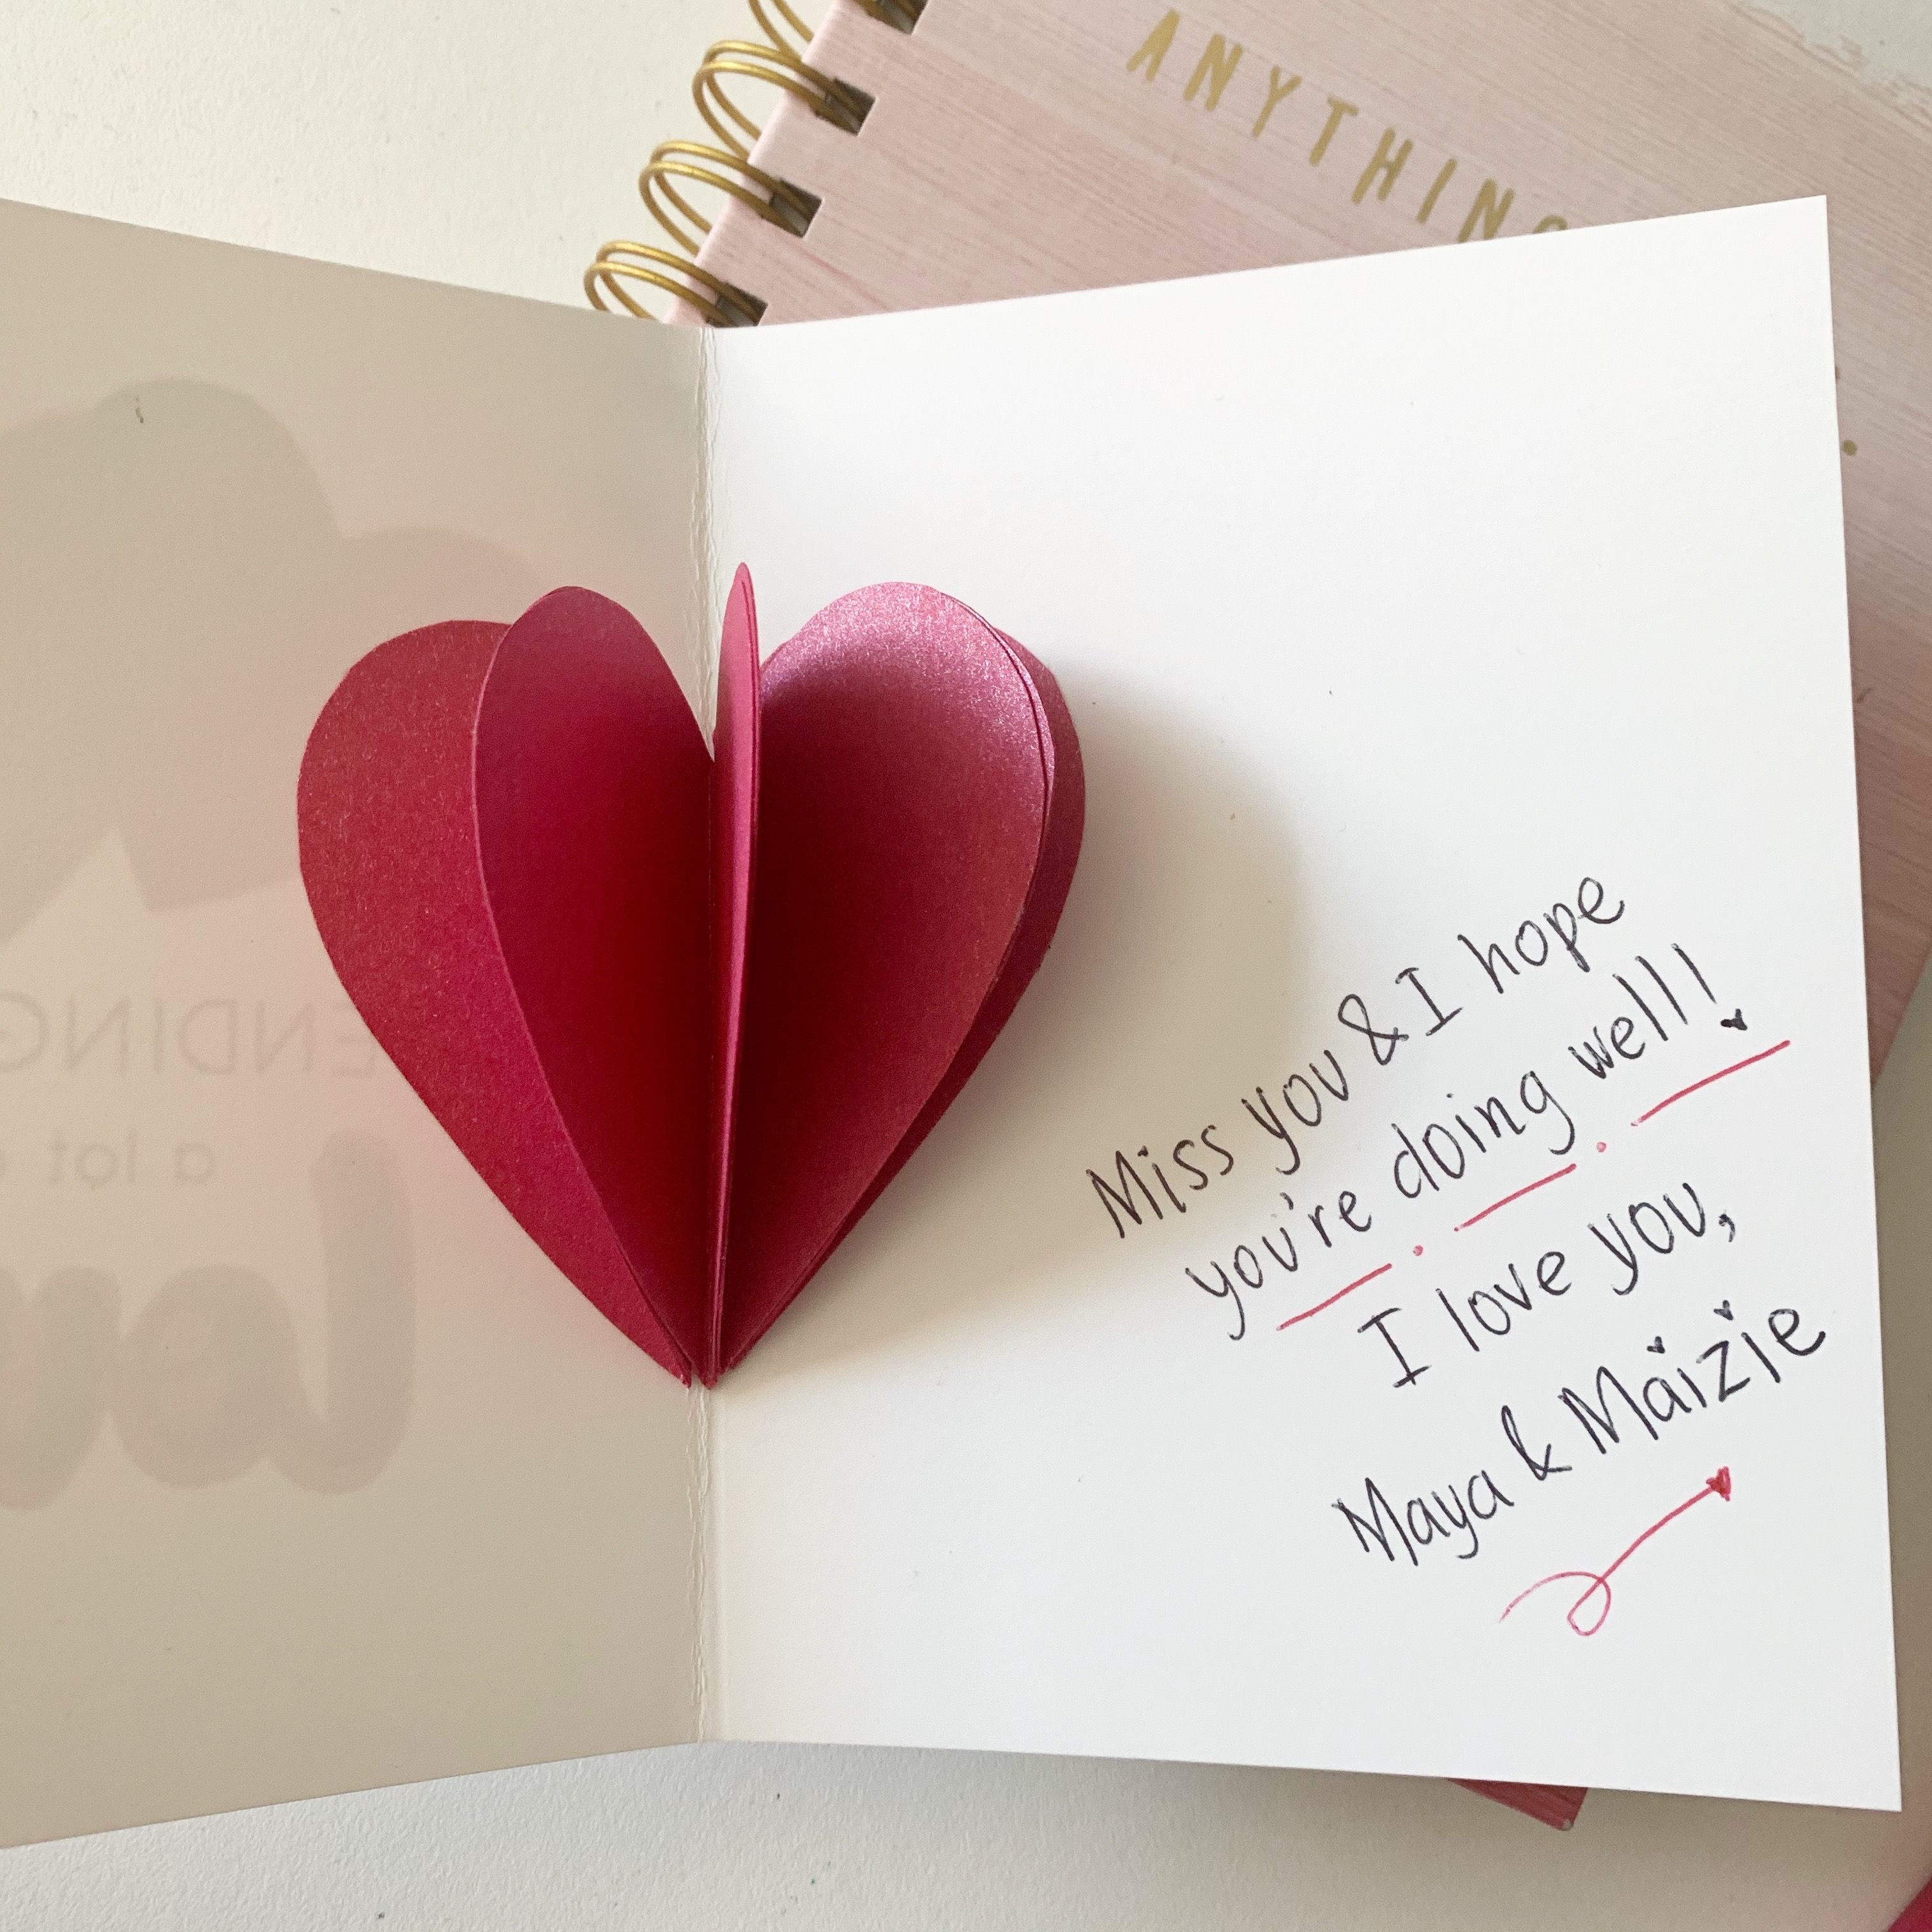 ANYTHING
ENDING
a lot
Miss you & I hope
you're doing well!
I love you,
Maya & Maizie